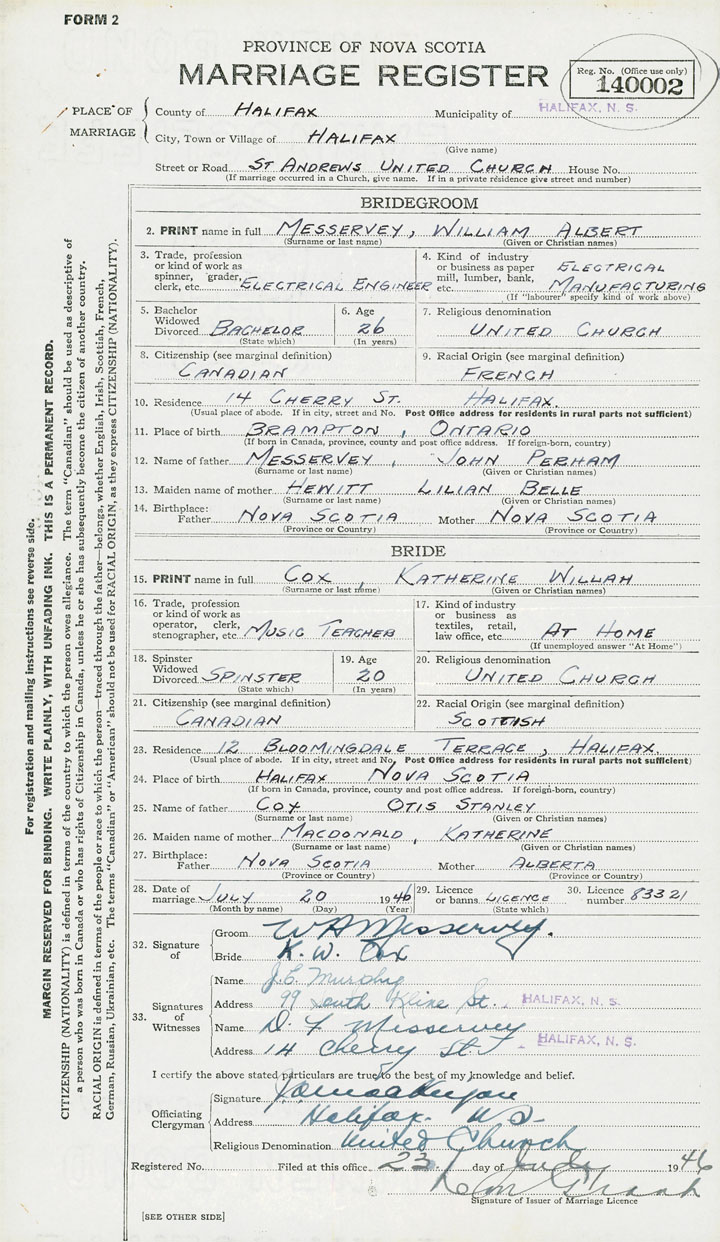 FORM 2
PROVINCE OF NOVA SCOTIA
MARRIAGE REGISTER
Reg. No. (Office use only)
140002
PLACE OF MARRIAGE
County of HALIFAX Municipality of HALIFAX, N. S.
City, Town or Village of HALIFAX
(Give name)
Street or Road ST ANDREWS UNITED CHURCH House No.
(If marriage occurred in a Church, give name. If in a private residence give street and number)
BRIDEGROOM
2. PRINT name in full MESSERVEY, WILLIAM ALBERT
(Surname or last name) (Given or Christian names)
3. Trade, profession or kind of work as spinner, grader, clerk, etc. ELECTRICAL ENGINEER
4. Kind of industry or business as paper mill, lumber, bank, etc. ELECTRICAL MANUFACTURING
(If "labourer" specify kind of work above)
5. Bachelor Widowed Divorced BACHELOR
(State which)
6. Age 26
(In years)
7. Religious denomination
UNITED CHURCH
8. Citizenship (see marginal definition)
CANADIAN
9. Racial Origin (see marginal definition)
FRENCH
10. Residence 14 CHERRY ST. HALIFAX.
(Usual place of abode. If in city, street and No. Post Office address for residents in rural parts not sufficient)
11. Place of birth BRAMPTON, ONTARIO
(If born in Canada, province, county and post office address. If foreign-born, country)
12. Name of father MESSERVEY, JOHN PERHAM
(Surname or last name) (Given or Christian names)
13. Maiden name of mother HEWITT LILIAN BELLE
(Surname or last name) (Given or Christian names)
14. Birthplace: Father NOVA SCOTIA Mother NOVA SCOTIA
(Province or Country) (Province or Country)
BRIDE
15. PRINT name in full COX, KATHERINE WILLAH
(Surname or last name) (Given or Christian names)
16. Trade, profession or kind of work as operator, clerk, stenographer, etc. MUSIC TEACHER
17. Kind of industry or business as textiles, retail, law office, etc. AT HOME
(If unemployed answer "At Home")
18. Spinster Widowed Divorced SPINSTER
(State which)
19. Age 20
(In years)
20. Religious denomination
UNITED CHURCH
21. Citizenship (see marginal definition)
CANADIAN
22. Racial Origin (see marginal definition)
SCOTTISH
23. Residence 12 BLOOMINGDALE TERRACE, HALIFAX.
(Usual place of abode. If in city, street and No. Post Office address for residents in rural parts not sufficient)
24. Place of birth HALIFAX NOVA SCOTIA
(If born in Canada, province, county and post office address. If foreign-born, country)
25. Name of father COX OTIS STANLEY
(Surname or last name) (Given or Christian names)
26. Maiden name of mother MACDONALD, KATHERINE
(Surname or last name) (Given or Christian names)
27. Birthplace: Father NOVA SCOTIA Mother ALBERTA
(Province or Country) (Province or Country)
28. Date of marriage JULY 20 1946
(Month by name) (Day) (Year)
29. Licence or banns LICENCE
(State which)
30. Licence number 83321
32. Signature of
Groom W A Messervey.
Bride K. W. Cox
33. Signatures of Witnesses
Name J. E. Murphy
Address 99 South Kline St., HALIFAX, N. S.
Name D. F. Messervey
Address 14 Cherry St. HALIFAX, N. S.
I certify the above stated particulars are true to the best of my knowledge and belief.
Officiating Clergyman
Signature
Address Halifax. N.S.
Religious Denomination United Church
Registered No. Filed at this office 23 day of July 1946
Signature of Issuer of Marriage Licence
[SEE OTHER SIDE]
For registration and mailing instructions see reverse side.
MARGIN RESERVED FOR BINDING. WRITE PLAINLY, WITH UNFADING INK. THIS IS A PERMANENT RECORD.
CITIZENSHIP (NATIONALITY) is defined in terms of the country to which the person owes allegiance. The term "Canadian" should be used as descriptive of
a person who was born in Canada or who has rights of Citizenship in Canada, unless he or she has subsequently become the citizen of another country.
RACIAL ORIGIN is defined in terms of the people or race to which the person—traced through the father—belongs, whether English, Irish, Scottish, French,
German, Russian, Ukrainian, etc. The terms "Canadian" or "American" should not be used for RACIAL ORIGIN, as they express CITIZENSHIP (NATIONALITY).